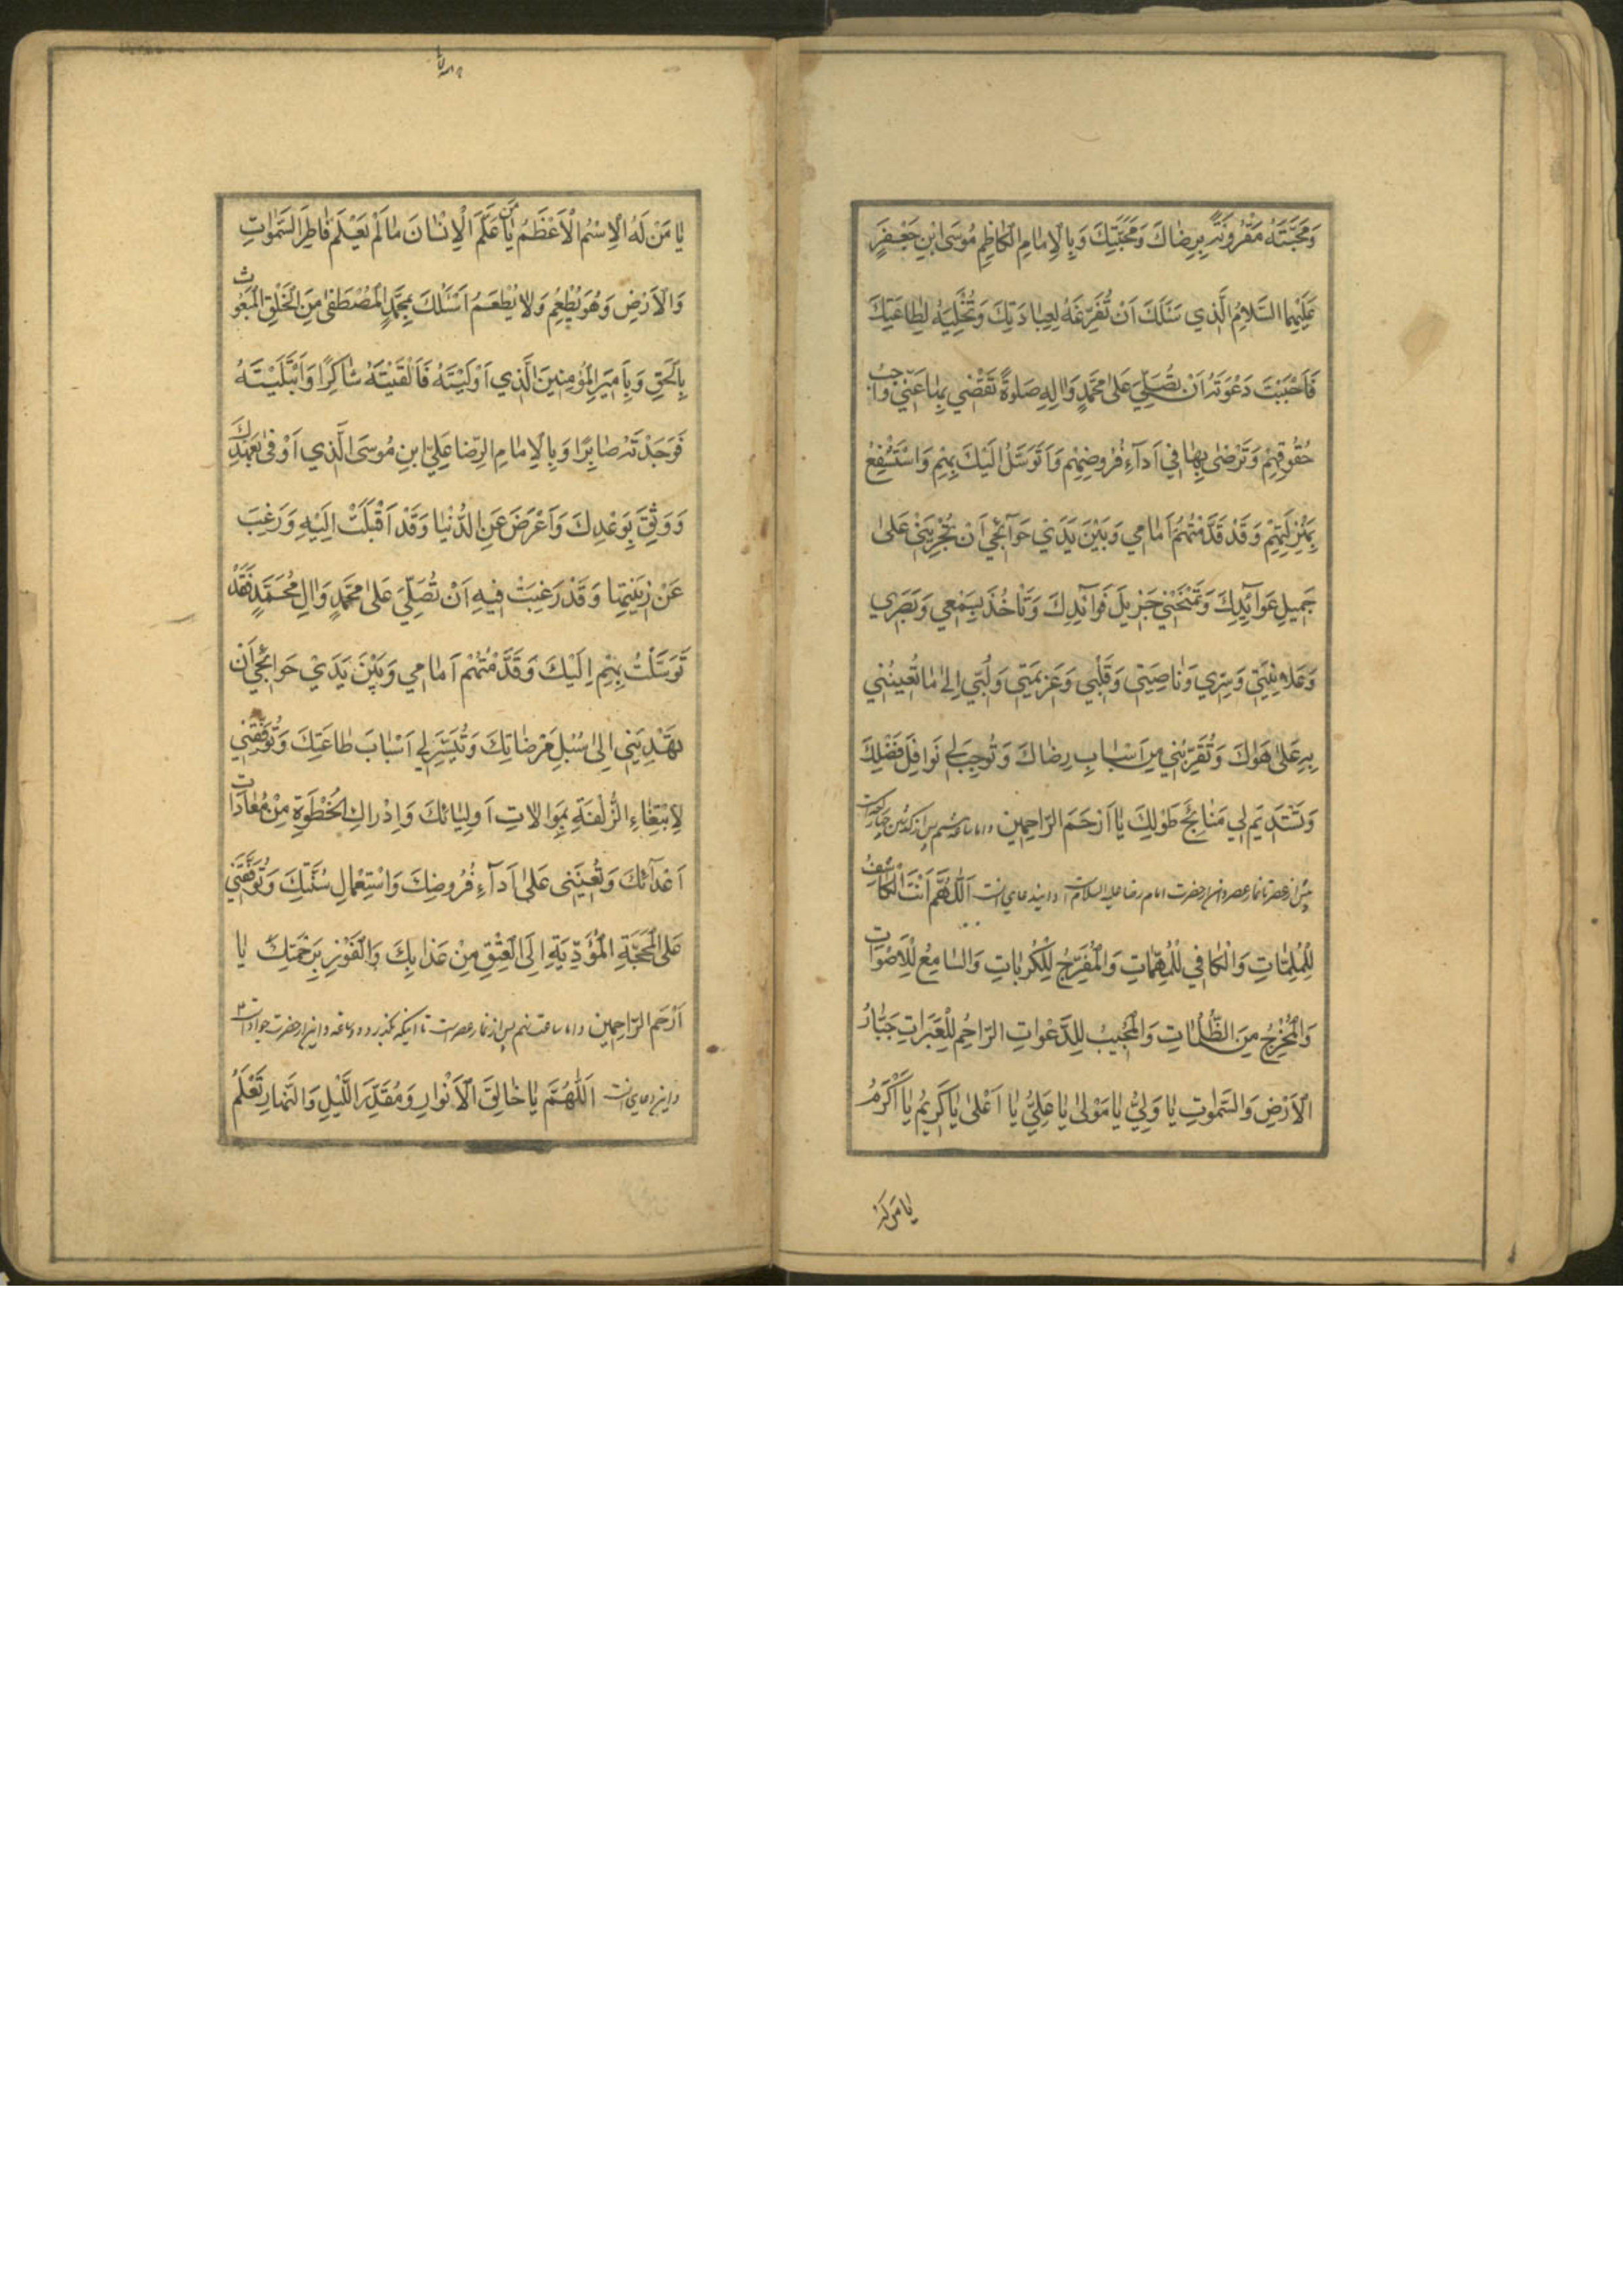 وَمَحَبَّتَهُ مَقْرُونَةً بِرِضاكَ وَمَحَبَّتِكَ وَبِالْاِمامِ الْكاظِمِ مُوسَى ابْنِ جَعْفَرٍ
عَلَيْهِمَا السَّلامُ الَّذي سَئَلَكَ اَنْ تُفَرِّغَهُ لِعِبادَتِكَ وَتُخَلِّيَهُ لِطاعَتِكَ
فَاَحْبَبْتَ دَعْوَتَهُ اَنْ تُصَلِّيَ عَلى مُحَمَّدٍ وَالِهِ صَلوةً تَقْضي بِها عَنّي واجِبَ
حُقُوقِهِمْ وَتَرْضى بِها في اَدآءِ فُرُوضِهِمْ وَاَتَوَسَّلُ اِلَيْكَ بِهِمْ وَاَسْتَشْفِعُ
بِمَنْزِلَتِهِمْ وَقَدْ قَدَّمْتُهُمْ اَمامي وَبَيْنَ يَدَيْ حَوآئِجي اَنْ تُجْرِيَني عَلى
جَميلِ عَوآئِدِكَ وَتَمْنَحَني جَزيلَ فَوآئِدِكَ وَتَاْخُذَ بِسَمْعي وَبَصَري
وَعَلانِيَتي وَسِرّي وَناصِيَتي وَقَلْبي وَعَزيمَتي وَلُبّي اِلى ما تُعينُني
بِهِ عَلى هَواكَ وَتُقَرِّبُني مِنْ اَسْبابِ رِضاكَ وَتُوجِبَ لي نَوافِلَ فَضْلِكَ
وَتَسْتَديمَ لي مَنائِحَ طَوْلِكَ يا اَرْحَمَ الرّاحِمينَ واما ساعة هشتم پس از گذشتن چهار ركعت
پيش از عصر تا نماز عصر و آن از حضرت امام رضا عليه السلام است و اينست دعاي آن اَللّهُمَّ اَنْتَ الْكاشِفُ
لِلْمُلِمّاتِ وَالْكافي لِلْمُهِمّاتِ وَالْمُفَرِّجُ لِلْكُرُباتِ وَالسّامِعُ لِلْاَصْواتِ
وَالْمُخْرِجُ مِنَ الظُّلُماتِ وَالْمُجيبُ لِلدَّعَواتِ الرّاحِمُ لِلْعَبَراتِ جَبّارُ
الْاَرْضِ وَالسَّمواتِ يا وَلِيُّ يا مَوْلى يا عَلِيُّ يا اَعْلى يا كَريمُ يا اَكْرَمُ
يا من له
يا مَنْ لَهُ الْاِسْمُ الْاَعْظَمُ يا مَنْ عَلَّمَ الْاِنْسانَ ما لَمْ يَعْلَمْ فاطِرَ السَّمواتِ
وَالْاَرْضِ وَهُوَ يُطْعِمُ وَلا يُطْعَمُ اَسْئَلُكَ بِمُحَمَّدٍ الْمُصْطَفى مِنَ الْخَلْقِ الْمَبْعُوثِ
بِالْحَقِّ وَبِاَميرِ الْمُؤْمِنينَ الَّذي اَوْلَيْتَهُ فَاَلْفَيْتَهُ شاكِرًا وَابْتَلَيْتَهُ
فَوَجَدْتَهُ صابِرًا وَبِالْاِمامِ الرِّضا عَلِيِّ ابنِ مُوسَى الَّذي اَوْفى بِعَهْدِكَ
وَوَثِقَ بِوَعْدِكَ وَاَعْرَضَ عَنِ الدُّنْيا وَقَدْ اَقْبَلَتْ اِلَيْهِ وَرَغِبَ
عَنْ زينَتِها وَقَدْ رَغِبَتْ فيهِ اَنْ تُصَلِّيَ عَلى مُحَمَّدٍ وَالِ مُحَمَّدٍ فَقَدْ
تَوَسَّلْتُ بِهِمْ اِلَيْكَ وَقَدَّمْتُهُمْ اَمامي وَبَيْنَ يَدَيْ حَوائِجي اَنْ
تَهْدِيَني اِلى سُبُلِ مَرْضاتِكَ وَتُيَسِّرَ لي اَسْبابَ طاعَتِكَ وَتُوَفِّقَني
لِابْتِغاءِ الزُّلْفَةِ بِمُوالاتِ اَوْلِيائِكَ وَاِدْراكِ الْخُطْوَةِ مِنْ مُعاداتِ
اَعْدآئِكَ وَتُعينَني عَلى اَدآءِ فُرُوضِكَ وَاسْتِعْمالِ سُنَّتِكَ وَتُوَفِّقَني
عَلَى الْمَحَجَّةِ الْمُؤَدِّيَةِ اِلَى الْعِتْقِ مِنْ عَذابِكَ وَالْفَوْزِ بِرَحْمَتِكَ يا
اَرْحَمَ الرّاحِمينَ واما ساعت نهم پس از نماز عصرست تا اينكه بگذرد دو ساعة و اين از حضرت جوادست
و اين دعاي آنست اَللّهُمَّ يا خالِقَ الْاَنْوارِ وَمُقَدِّرَ اللَّيْلِ وَالنَّهارِ تَعْلَمُ